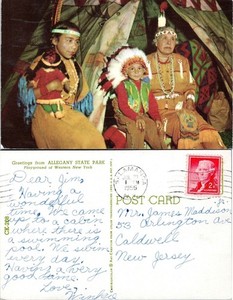 Greetings from ALLEGANY STATE PARK
Playground of Western New York
POST CARD
Dear Jim,
Having a
wonderful
time. We came
to a cabin
where there is
a swimming
pool. We swim
every day.
Having a very
good time.
Love,
Mr. James Maddison
Arlington Ave
Caldwell
New Jersey